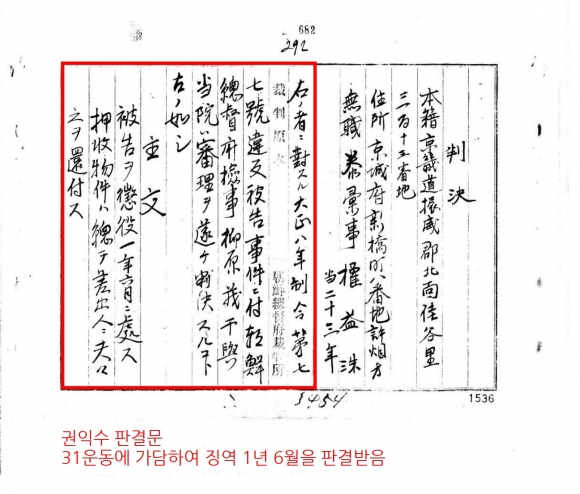 682
292
判決
本籍京畿道振威郡北面佳谷里
三百十五番地
住所 京城府新橋洞八番地許烟方
無職 彙事 權益洙
当二十三年
裁判原本
朝鮮總督府裁判所
右ノ者ニ對スル大正八年制令第七
七號違反被告事件ニ付朝鮮
總督府檢事柳原茂干與
当院ハ審理ヲ遂ケ判決スルコト
左ノ如シ
主文
被告ヲ懲役一年六月ニ處ス
押收物件ハ總テ差出人ニ夫々
之ヲ還付ス
1536
권익수 판결문
31운동에 가담하여 징역 1년 6월을 판결받음